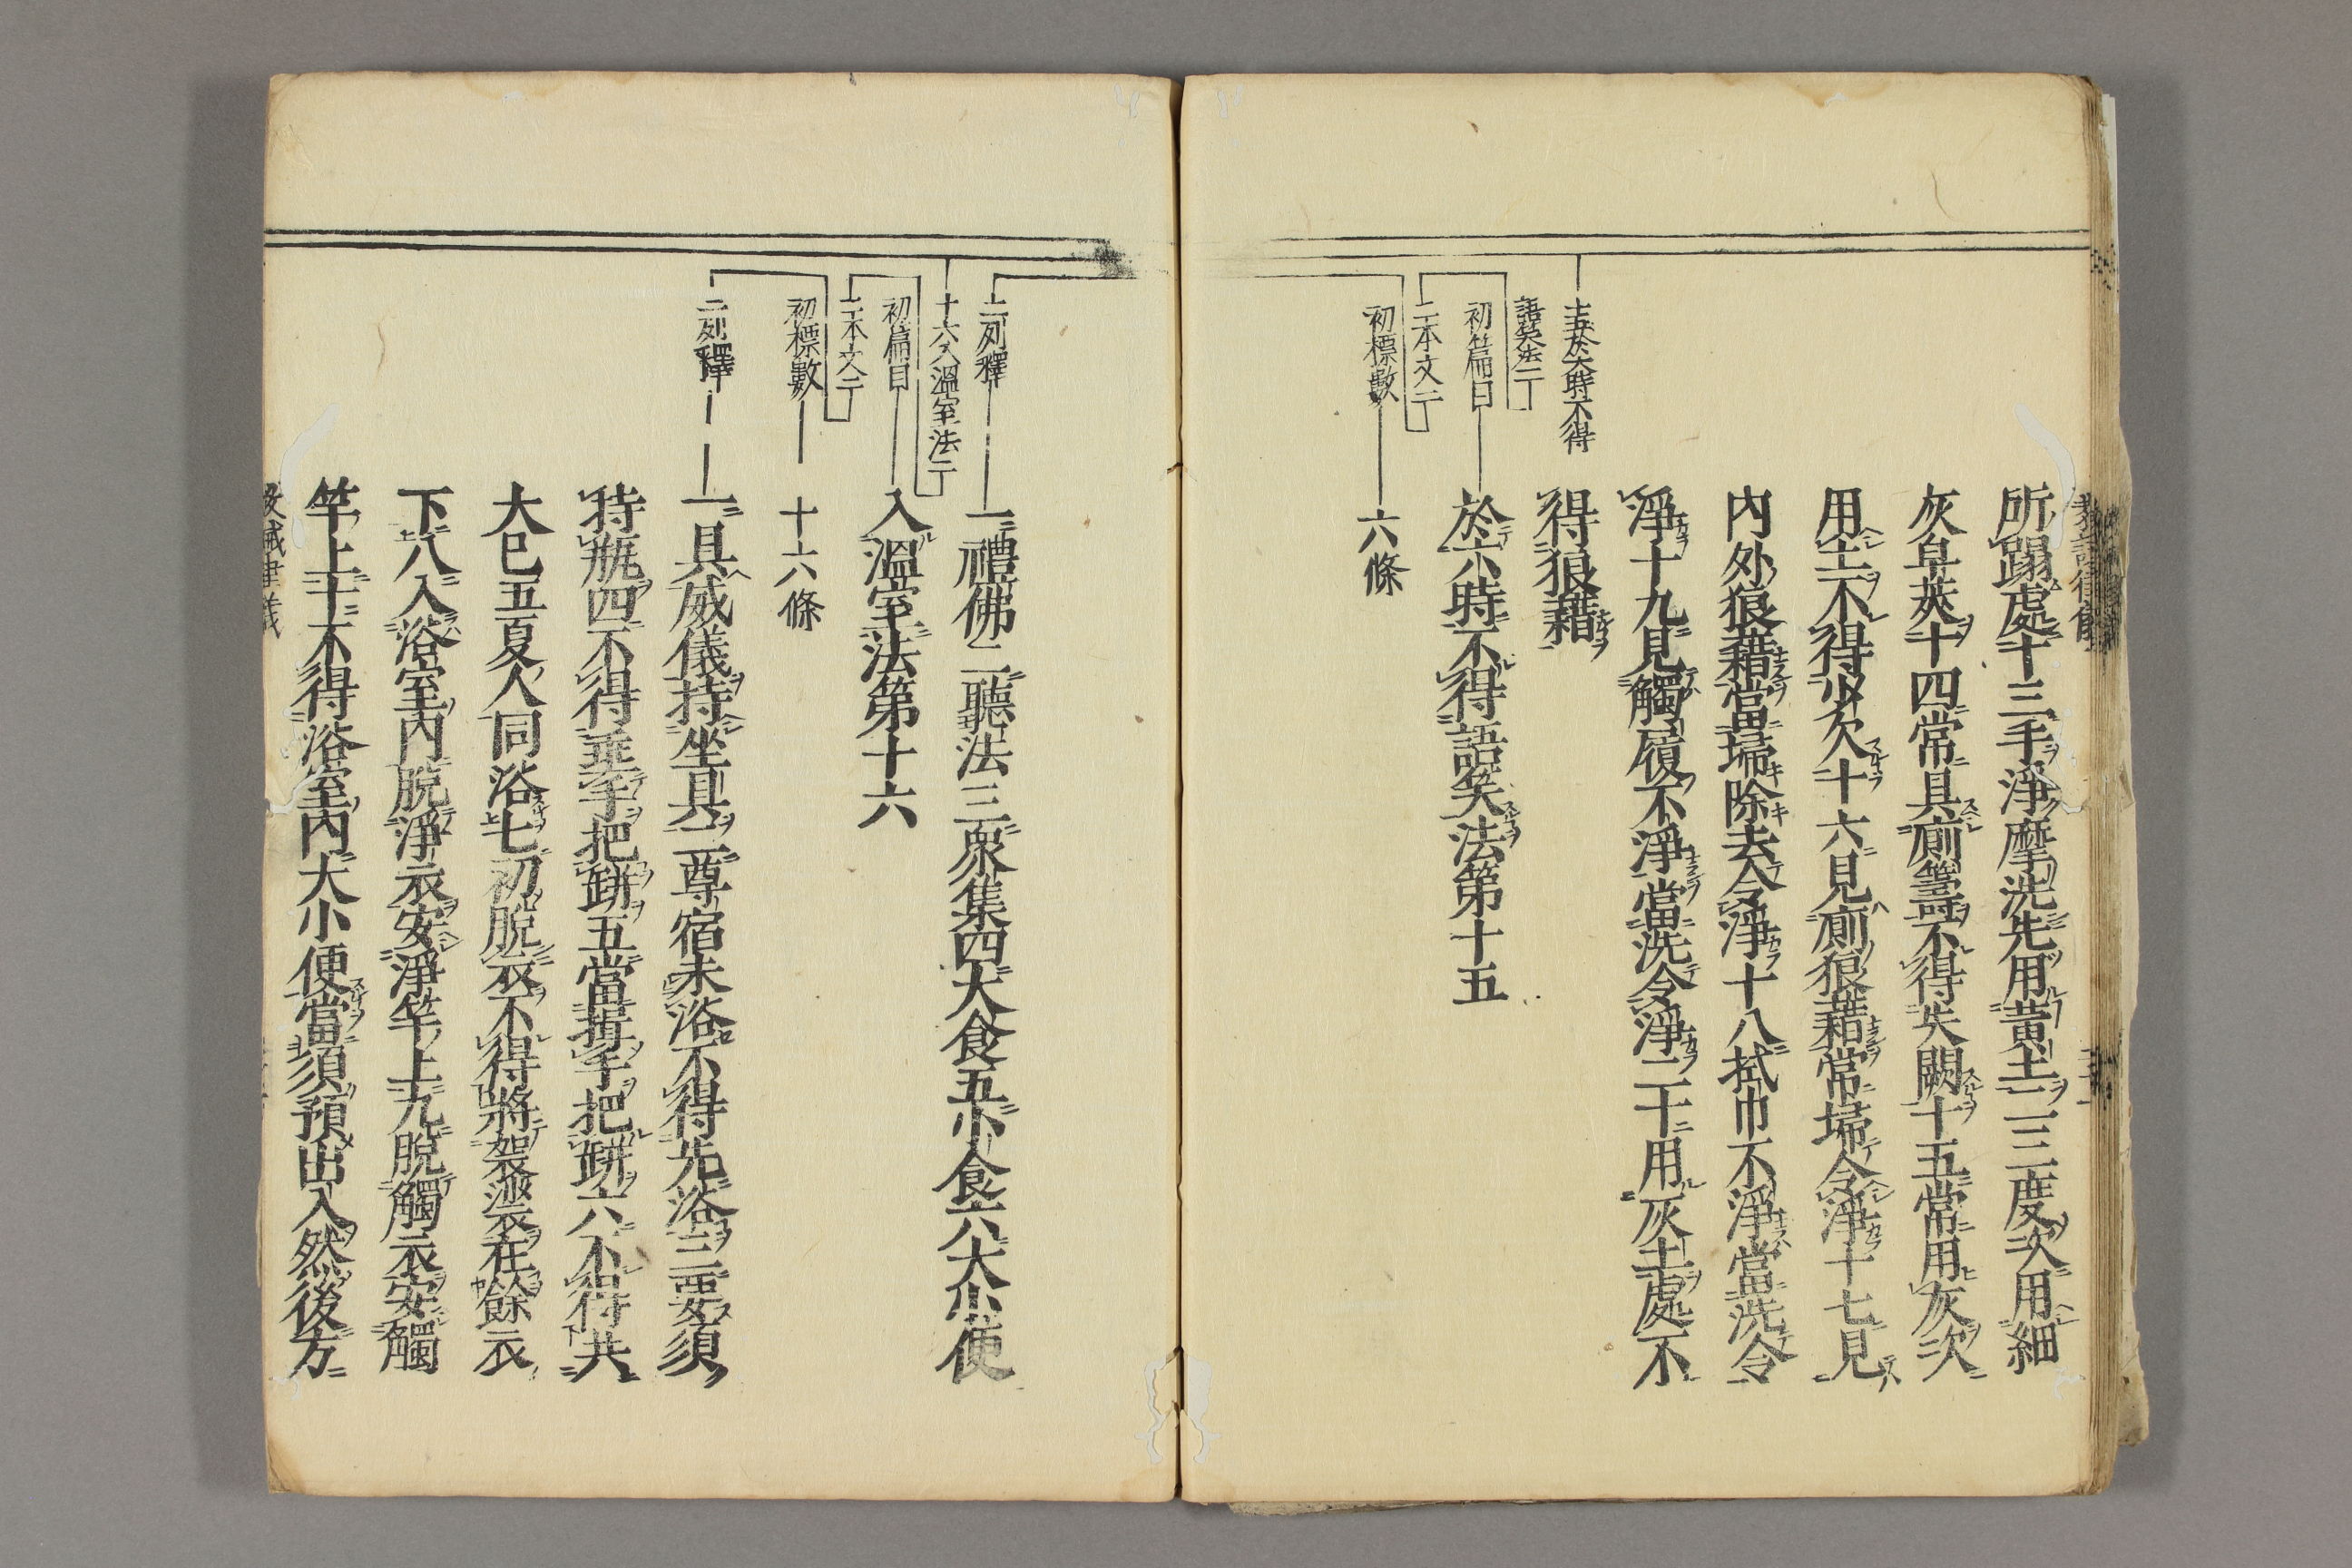 所蹋處十三手淨摩洗先用黃土二三度次用細
灰皁莢十四常具廁籌不得失闕十五常用灰次
用土不得少欠十六見廁狼藉常埽令淨十七見
內外狼藉當埽除去令淨十八拭巾不淨當洗令
淨十九見觸履不淨當洗令淨二十用灰土處不
得狼藉
十五於六時不得
語笑法二
初篇目
於六時不得語笑法第十五
二本文二
初標數
六條
二列釋
一禮佛二聽法三衆集四大食五小食六大小便
十六入溫室法二
初篇目
入溫室法第十六
二本文二
初標數
十六條
二列釋
一具威儀持坐具二尊宿未浴不得先浴三要須
持瓶四不得垂手把缾五當揖手把缾六不得共
大已五夏人同浴七初脫衣不得將袈裟在餘衣
下八入浴室內脫淨衣安淨竿上九脫觸衣安觸
竿上十不得浴室內大小便當須預出入然後方
教誡律儀